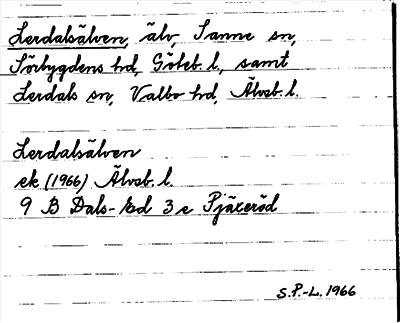 Lerdalsälven, älv, Sanne sn,
Sörbygdens hd, Göteb. l., samt
Lerdals sn, Valbo hd, Älvsb. l.
Lerdalsälven
ek (1966) Älvsb. l.
9 B Dals-Ed 3 e Pjäkeröd
S.P.-L. 1966